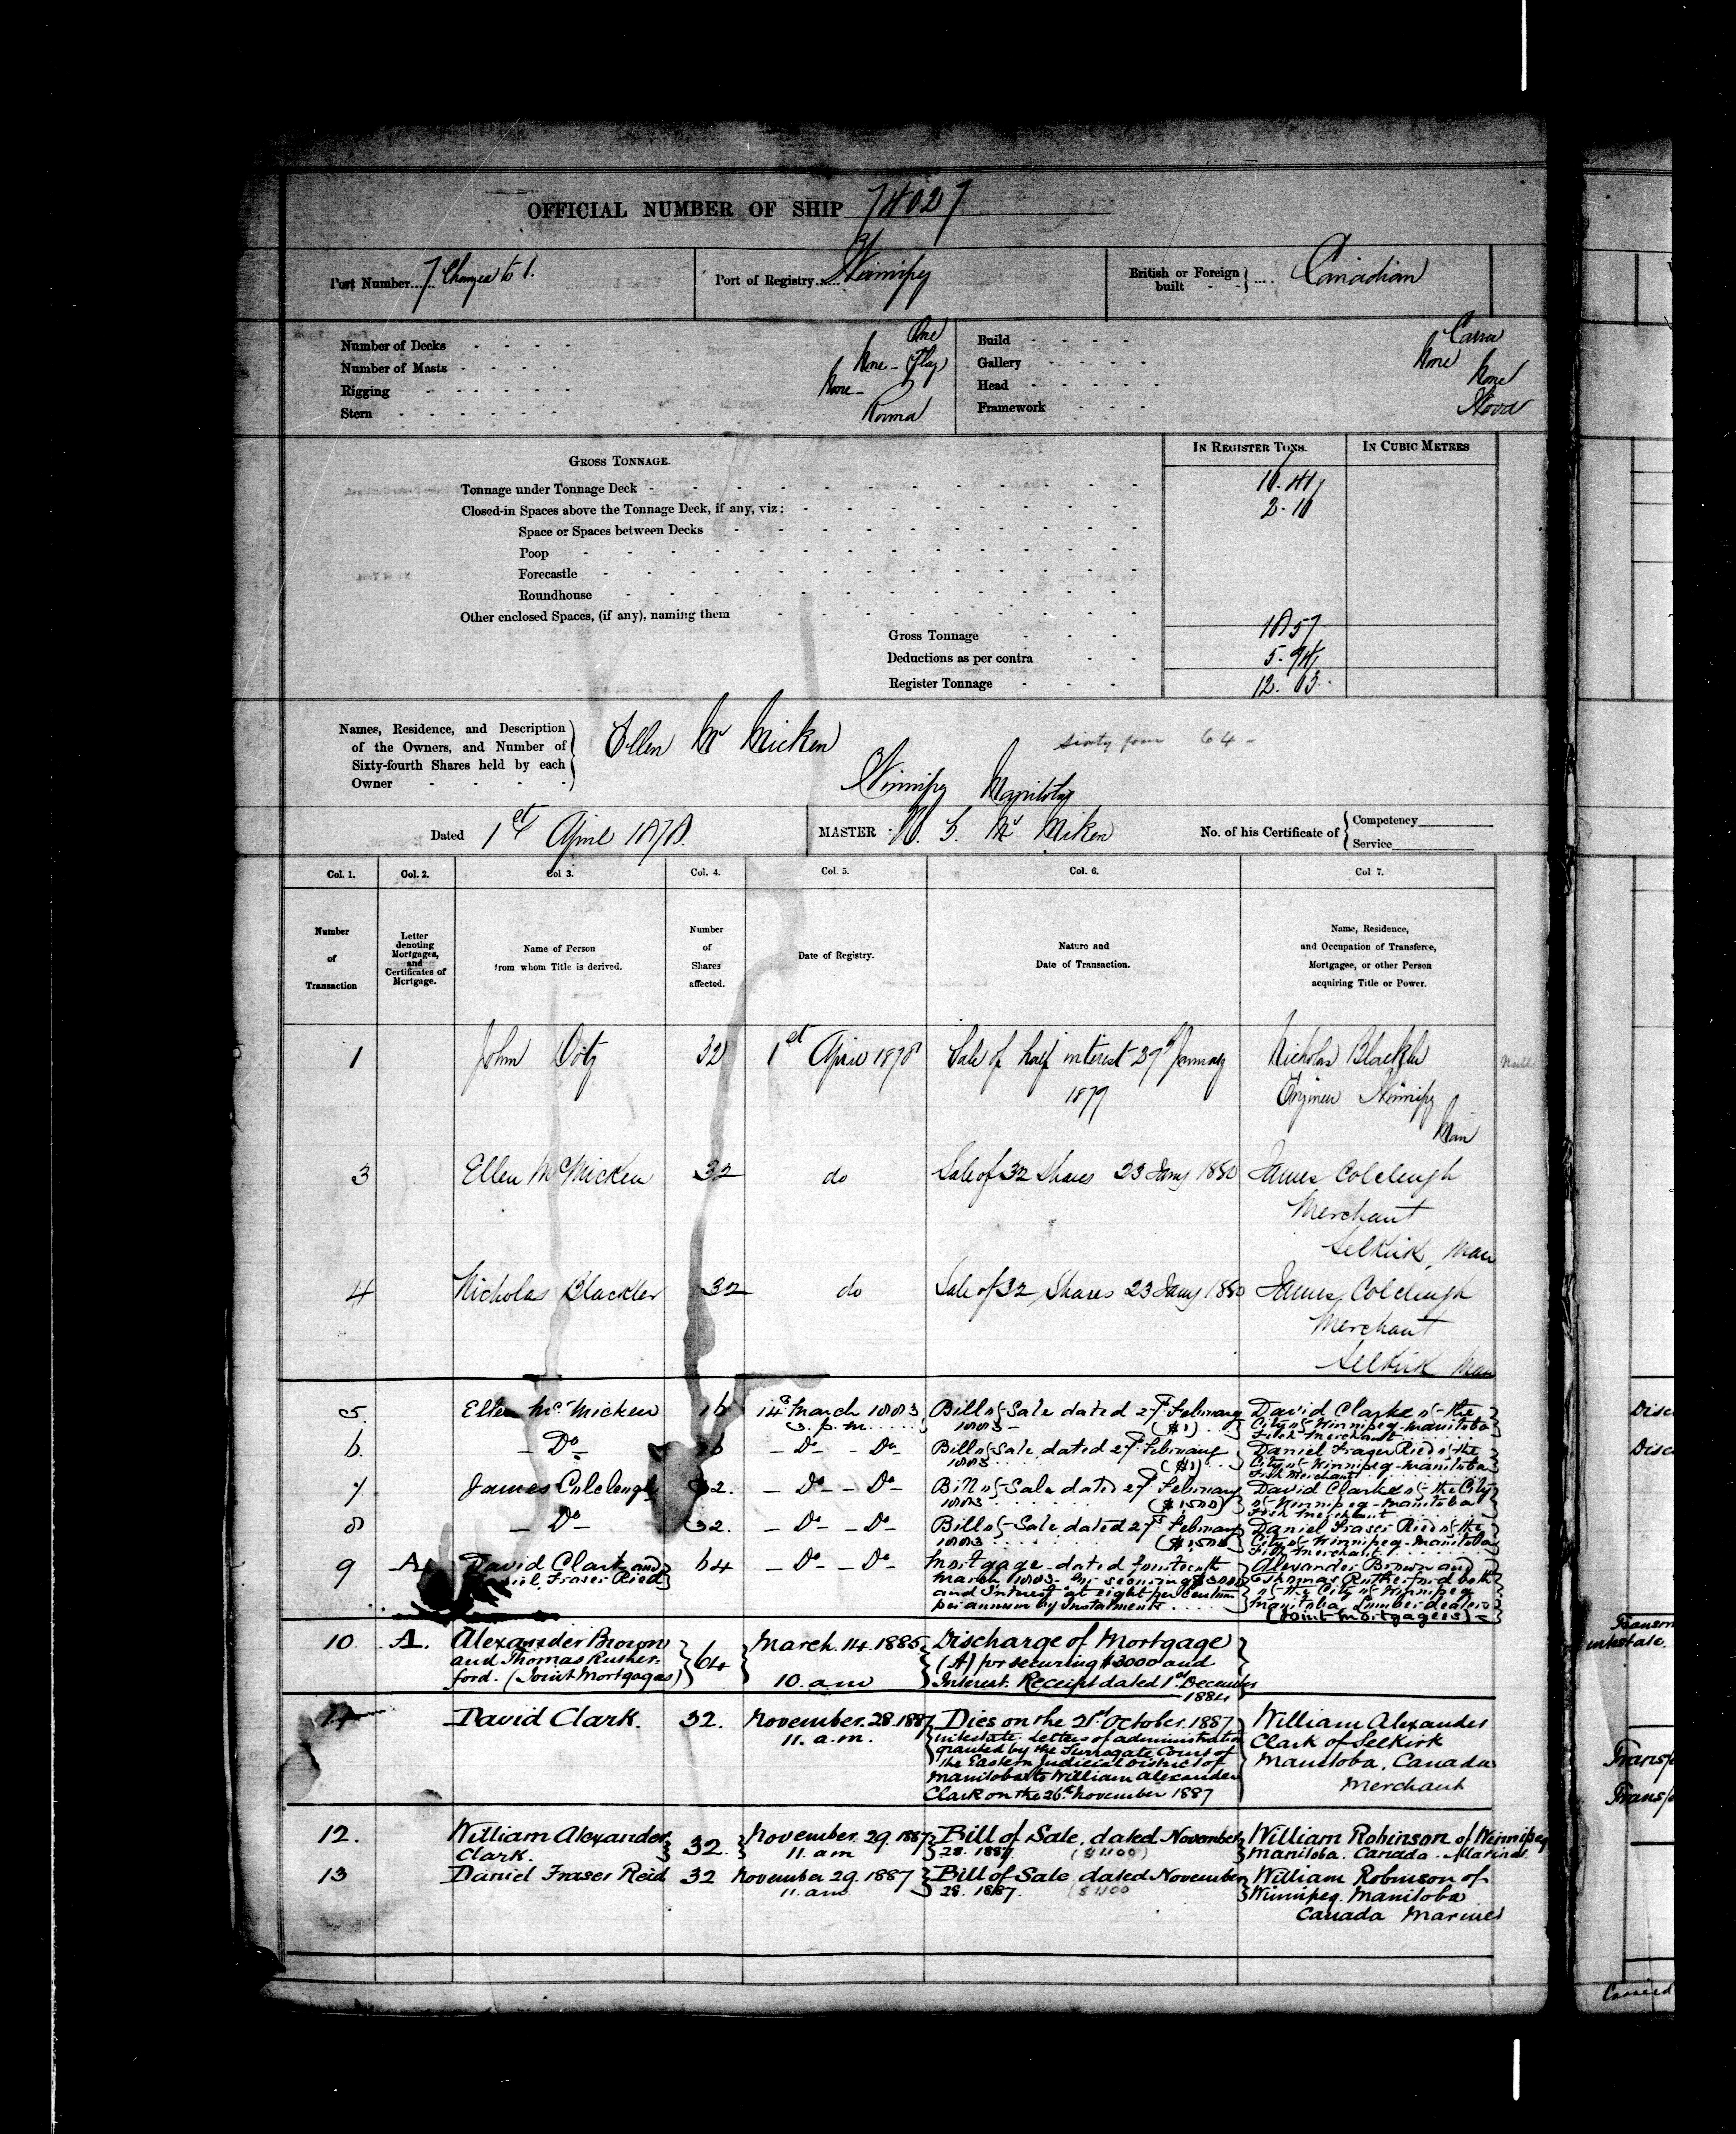 OFFICIAL NUMBER OF SHIP 74027
Port Number...... 7 Changed to 1.
Port of Registry...... Winnipeg
British or Foreign built - - } .... Canadian
Number of Decks - - - - One
Number of Masts - - - - None - (Flag)
Rigging - - - - - - None -
Stern - - - - - - Round
Build - - - -
Gallery - - - - None
Head - - - - - None
Framework - - - Wood
GROSS TONNAGE.
IN REGISTER TONS.
IN CUBIC METRES
Tonnage under Tonnage Deck -
Closed-in Spaces above the Tonnage Deck, if any, viz: - 2.10
Space or Spaces between Decks
Poop
Forecastle
Roundhouse
Other enclosed Spaces, (if any), naming them
Gross Tonnage - - - 18.57
Deductions as per contra - - 5.94
Register Tonnage - - - 12.63
Names, Residence, and Description
of the Owners, and Number of
Sixty-fourth Shares held by each
Owner - - - -
Ellen McMicken
sixty four 64 -
Winnipeg Manitoba
Dated 1st April 1878.
MASTER - McMiken
No. of his Certificate of { Competency
Service
Col. 1.
Col. 2.
Col 3.
Col. 4.
Col. 5.
Col. 6.
Col 7.
Number
of
Transaction
Letter
denoting
Mortgages,
and
Certificates of
Mortgage.
Name of Person
from whom Title is derived.
Number
of
Shares
affected.
Date of Registry.
Nature and
Date of Transaction.
Name, Residence,
and Occupation of Transferee,
Mortgagee, or other Person
acquiring Title or Power.
1 John 32 1st April 1878 Sale of half interest January Nicholas Blackler
1879 Engineer Winnipeg
Man
Null
3 Ellen McMicken 32 do Sale of 32 Shares 23 Jany 1880 James Colcleugh
Merchant
Selkirk, Man
4 Nicholas Blackler 32 do Sale of 32 Shares 23 Jany 1880 James Colcleugh
Merchant
Selkirk Man
5. Ellen McMicken 16 14th March 1883 Bill of Sale dated 27th February David Clarke of the
3. p.m. ..... 1883 - ($1) City of Winnipeg-Manitoba
Fish Merchant
6. - Do - 16 - Do - - Do - Bill of Sale dated 27th February Daniel Fraser Ried of the
1883 ..... ($1) City of Winnipeg-Manitoba
Fish Merchant
7. James Colcleugh 32. - Do - - Do - Bill of Sale dated 27th February David Clarke of the City
1883 ..... ($1500) of Winnipeg-Manitoba
Fish Merchant
8 - Do - 32. - Do - - Do - Bill of Sale dated 27th February Daniel Fraser Ried of the
1883 ..... ($1500) City of Winnipeg-Manitoba
Fish Merchant
9 A David Clark and 64 - Do - - Do - Mortgage dated fourteenth Alexander Brown and
Daniel Fraser Ried March 1883 - for securing $3000 Thomas Rutherford both
and Interest at eight per centum of the City of Winnipeg
per annum by Instalments ..... Manitoba Lumber dealers
(Joint Mortgagees) -
10 A. Alexander Brown 64 March 14. 1885 Discharge of Mortgage
and Thomas Ruther- (A) for securing $3000 and
ford. (Joint Mortgagees) 10. am Interest. Receipt dated 1st December
1884
11 David Clark. 32. November. 28. 1887 Dies on the 21st October. 1887 William Alexander
11. a.m. intestate. Letters of administration Clark of Selkirk
granted by the Surrogate Court of Manitoba, Canada
the Eastern Judicial District of Merchant
Manitoba to William Alexander
Clark on the 26th November 1887
12. William Alexander 32. November. 29. 1887 Bill of Sale, dated November William Robinson of Winnipeg
Clark. 11. am 28. 1887. ($1100) Manitoba. Canada. Mariner.
13 Daniel Fraser Reid 32 November 29. 1887 Bill of Sale dated November William Robinson of
11. am 28. 1887. ($1100 Winnipeg. Manitoba
Canada Mariner
Disc
Disc
Transm
intestate.
Transf
Transf
Carried